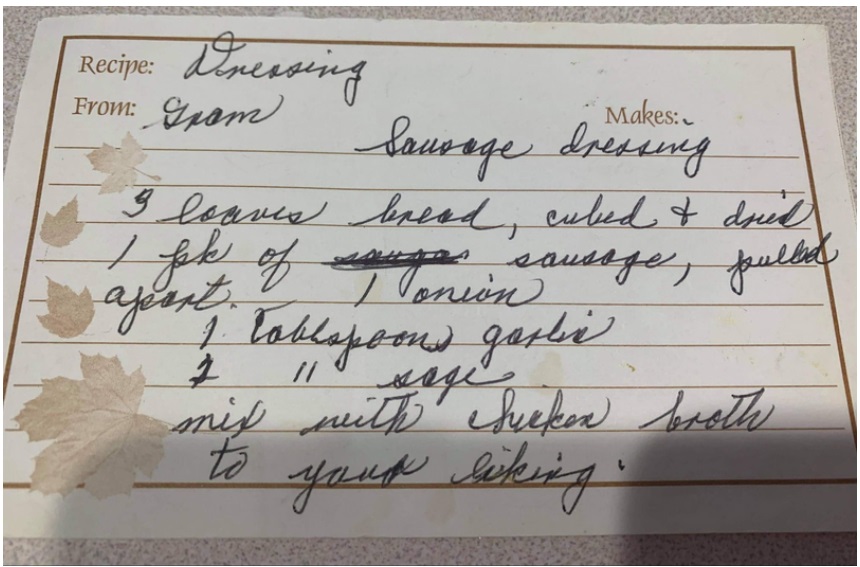 Recipe: Dressing
From: Gram Makes:
Sausage dressing
3 loaves bread, cubed & dried
1 pk of sausage, pulled
apart. 1 onion
1 Tablespoons garlic
1 " sage
mix with chicken broth
to your liking.